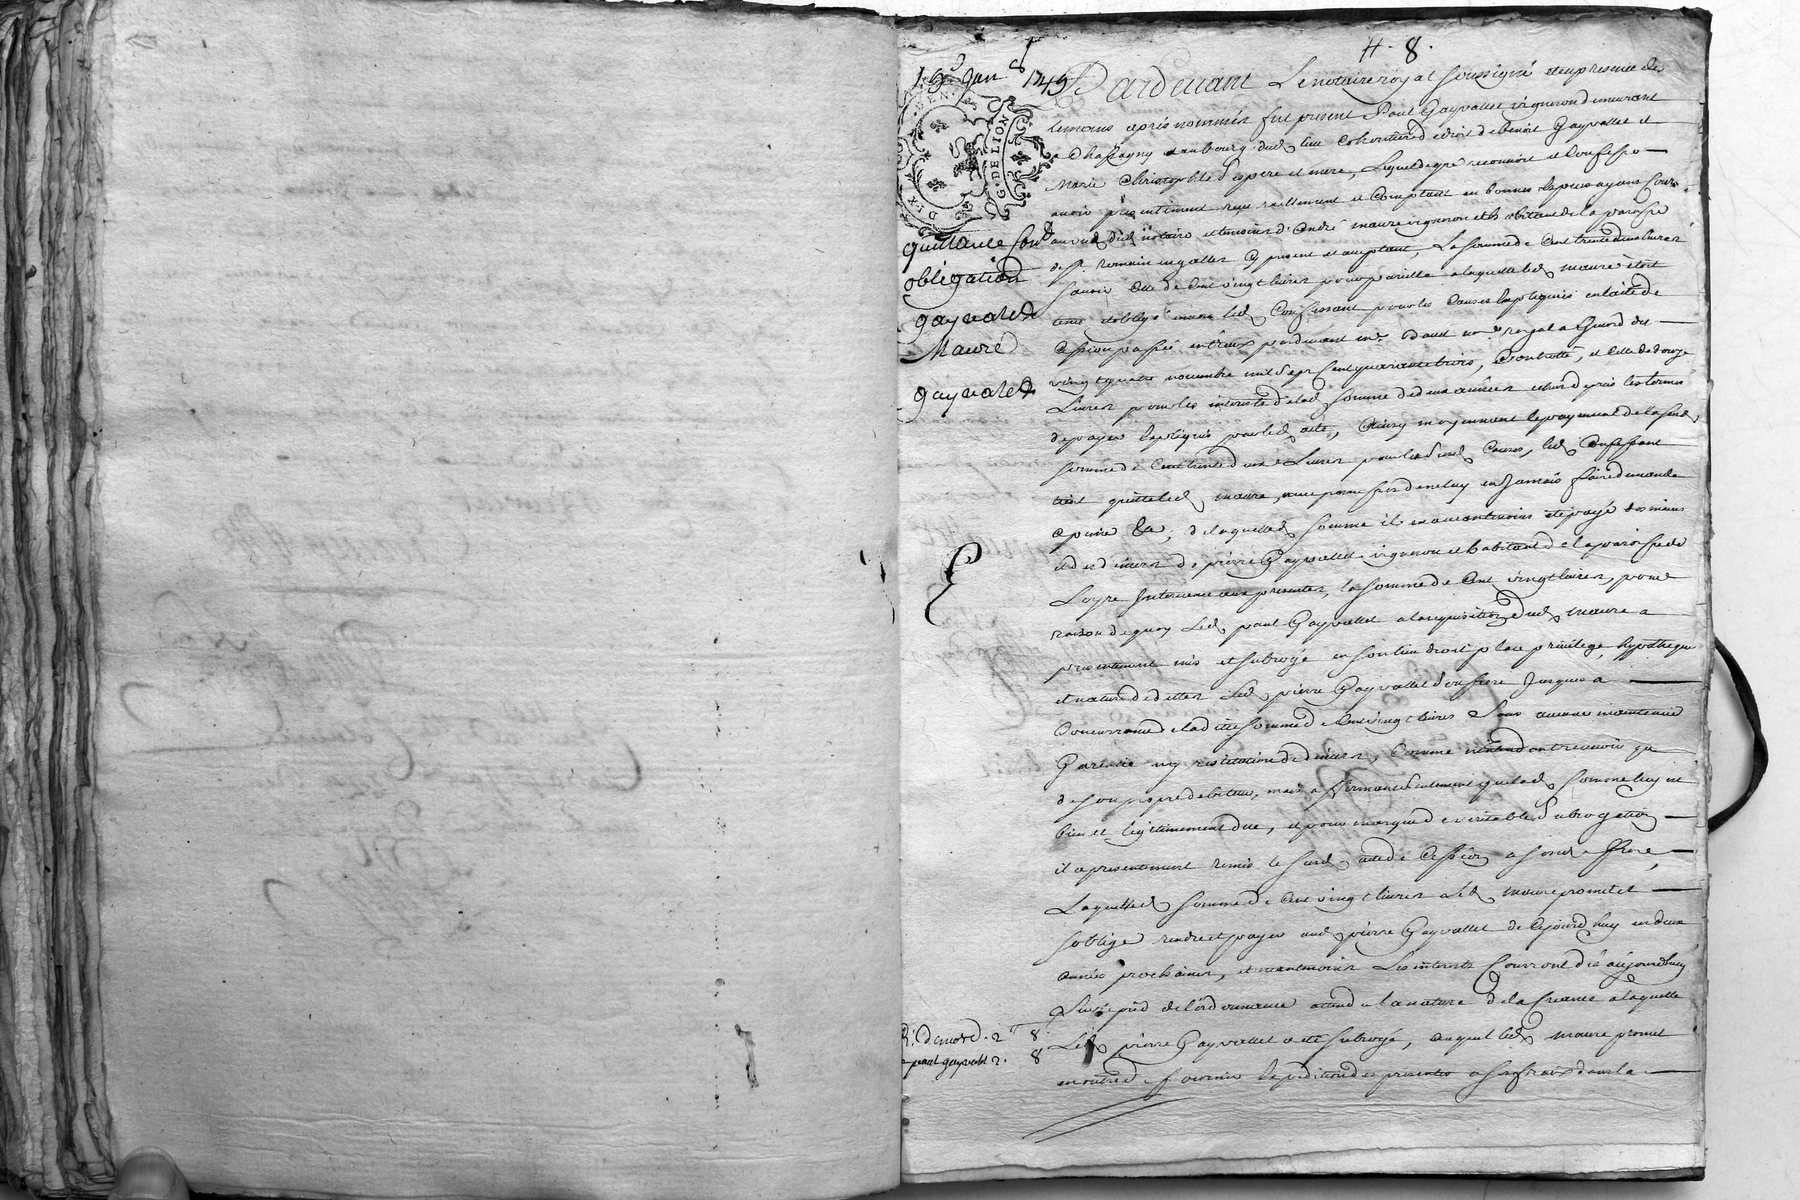 H. 8.
1745
DIX DEN.
G. DE LION
quittance
obligation
gayvalet
Maure
gayvalet
Pardevant Le notaire royal soussigné et en presence des
temoins apres nommés fut present Paul Gayvallet vigneron demeurant
a Chassagny au bourg dud lieu coheritier de droit de benoit Gayvallet et
Marie Christophle ses pere et mere, Lequel de gré reconnoit et Confesse
avoir presentement reçu reellement et Comptant en bonnes especes ayant Cours
au vu dud notaire et temoins d'andré maure vigneron et habitant de la paroisse
de st. Romain en gallier cy present et acceptant, La somme de Cent trente deux livres
sçavoir celle de Cent vingt livres pour pareille a laquelle led maure etoit
tenu et obligé envers led Confessant pour les Causes expliquées en l'acte de
Cession passé entr'eux pardevant me nre royal a Givord du
vingt quatre novembre mil sept Cent quarante trois, Controllé, et celle de douze
Livres pour les interests de lad somme de deux années
de payer expliqués par led acte, Ainsy moyennant le payement de la sud
somme de Cent trente deux Livres pour les sud Causes, led Confessant
tient quitte led maure, avec promesse de ne luy en jamais faire demande
a peine &a, de laquelle somme il en a neantmoins eté payé des mains
et deniers de pierre Gayvallet vigneron et habitant de la paroisse de
Loyre Intervenu aux presentes, la somme de Cent vingt livres, pour
raison de quoy Led paul Gayvallet a la requisition dud maure a
presentement mis et subrogé en son lieu droit place privilege, hypotheque
et nature de dettes Led pierre Gayvallet son frere jusques a
Concurrance de la dite somme de Cent vingt livres Sans aucune maintenue
Garentie ny restitution de deniers, Comme n'entendant recevoir que
de son propre debiteur, mais a seulement que lad somme luy est
bien et legitimement due, et pour marque de veritable subrogation
il a presentement remis le sud acte de Cession a sond frere,
Laquelle somme de Cent vingt livres Led maure promet et
s'oblige rendre et payer aud pierre Gayvallet de Cejourd'huy en deux
années prochaines, et neantmoins Les interests Courront dès aujourdhuy
Sur le pied de l'ordonnance attendu la nature de la Creance a laquelle
Led pierre Gayvallet a eté subrogé, auquel led maure promet
en outre de fournir expedition des presentes a ses frais dans la
2 8
paul gayvalet 2. 8